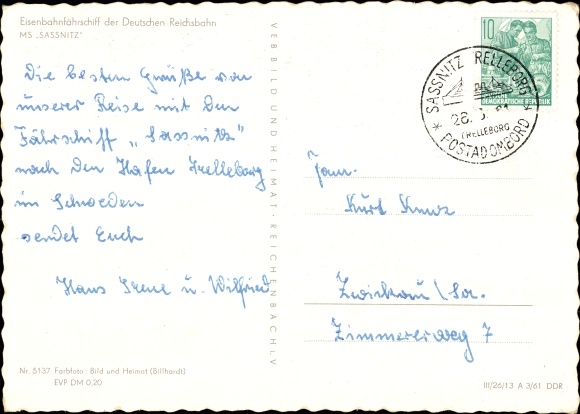 Eisenbahnfährschiff der Deutschen Reichsbahn
MS „SASSNITZ"
Die besten Grüße von
unserer Reise mit dem
Fährschiff „Sassnitz"
nach dem Hafen Trelleborg
in Schweden
sendet Euch
Hans Irene u. Wilfried
Nr. 5137 Farbfoto: Bild und Heimat (Billhardt)
EVP DM 0.20
VEB BILD UND HEIMAT · REICHENBACH I. V.
10
DEMOKRATISCHE REPUBLIK
* SASSNITZ TRELLEBORG *
28.
TRELLEBORG
POSTADOMBORD
Fam.
Kurt Kunz
Zwickau/Sa.
Zimmererweg 7
III/26/13 A 3/61 DDR